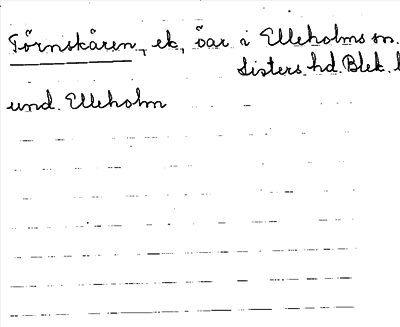 Törnskären, ek, öar i Elleholms sn.
Listers hd. Blek. l
und. Elleholm